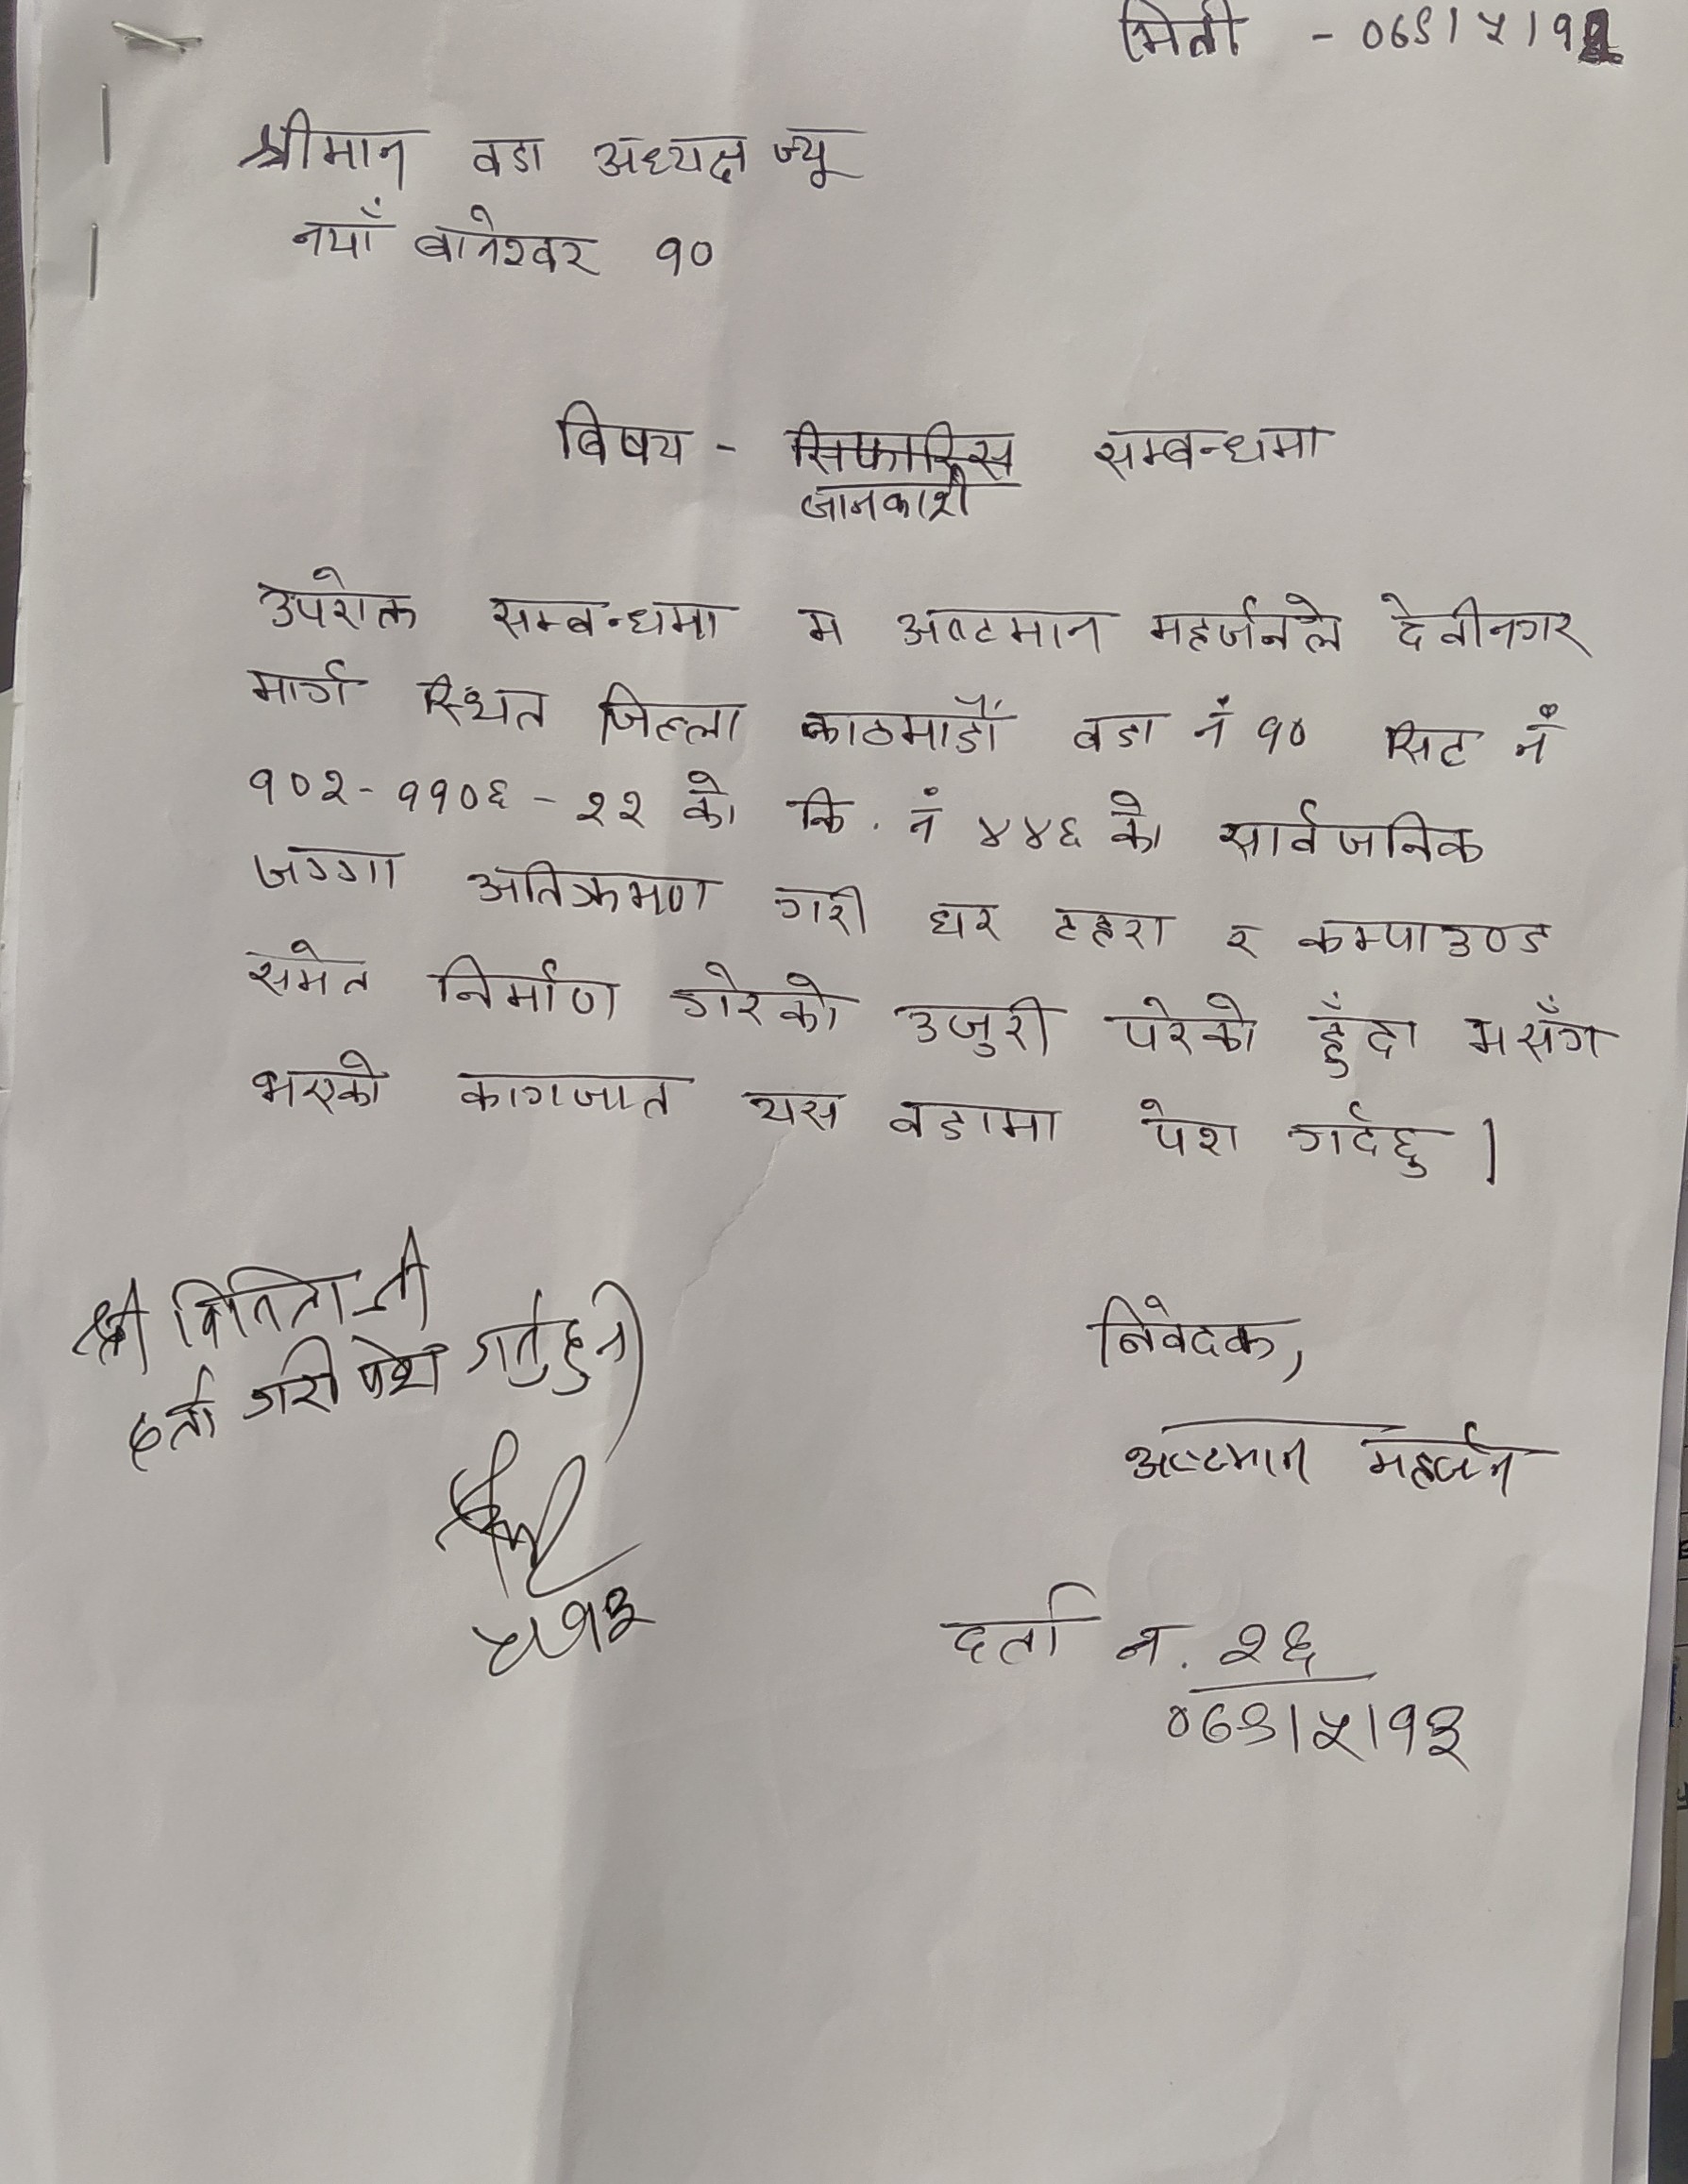 मिती - ०७९।५।१२
श्रीमान वडा अध्यक्ष ज्यू
नयाँ बानेश्वर १०
बिषय - सिफारिस सम्बन्धमा
जानकारी
उपरोक्त सम्बन्धमा म अष्टमान महर्जनले देवीनगर
मार्ग स्थित जिल्ला काठमाडौं वडा नं १० सिट नं
१०२-११०६-२२ को कि. नं ४४६ को सार्वजनिक
जग्गा अतिक्रमण गरी घर टहरा र कम्पाउण्ड
समेत निर्माण गरेको उजुरी परेको हुँदा मसँग
भएको कागजात यस वडामा पेश गर्दछु ।
श्री
दर्ता गरी पेश गर्नुहुन
५।१३
निवेदक,
अष्टमान महर्जन
दर्ता न. २६
०७९।५।१३